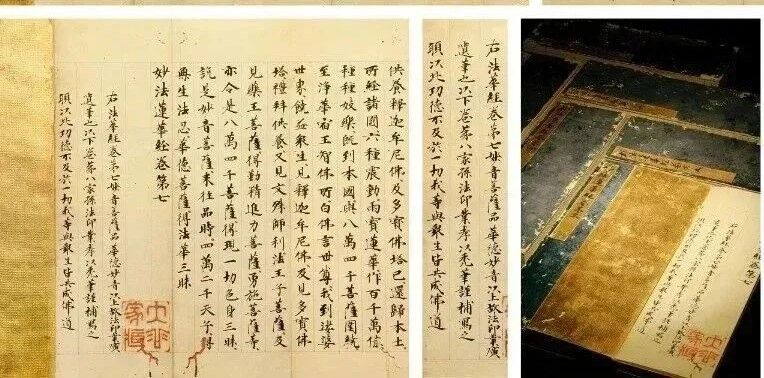 供養釋迦牟尼佛及多寶佛塔已還歸本土
所經諸國六種震動雨寶蓮華作百千萬億
種種妓樂既到本國與八萬四千菩薩圍繞
至淨華宿王智佛所白佛言世尊我到娑婆
世界饒益眾生見釋迦牟尼佛及見多寶佛
塔禮拜供養又見文殊師利法王子菩薩及
見藥王菩薩得勤精進力菩薩勇施菩薩等
亦令是八萬四千菩薩得現一切色身三昧
說是妙音菩薩來往品時四萬二千天子得
無生法忍華德菩薩得法華三昧
妙法蓮華經卷第七
右法華經卷第七妙音菩薩品華德妙音
以下卷第八家孫法印業孝以禿筆謹補寫之
願以此功德不及於一切我等與眾生皆共成佛道
右法華經卷第七妙音菩薩品華德妙音
以下卷第八家孫法印業孝以禿筆謹補寫之
願以此功德不及於一切我等與眾生皆共成佛道